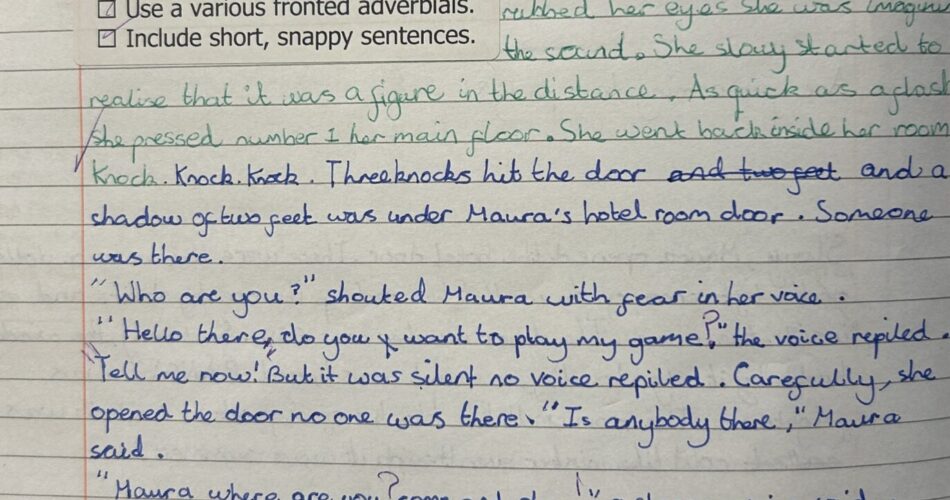 Use a various fronted adverbials.
Include short, snappy sentences.
rubbed her eyes she was
the sound. She slowy started to
realise that it was a figure in the distance. As quick as a
she pressed number 1 her main floor. She went back inside her room
Knock. Knock. Knock. Three knocks hit the door and two feet and a
shadow of two feet was under Maura's hotel room door. Someone
was there.
"Who are you?" shouted Maura with fear in her voice.
"Hello there, do you want to play my game?" the voice repiled.
"Tell me now!" But it was silent no voice repiled. Carefully, she
opened the door no one was there. "Is anybody there," Maura
said.
"Maura where are you?